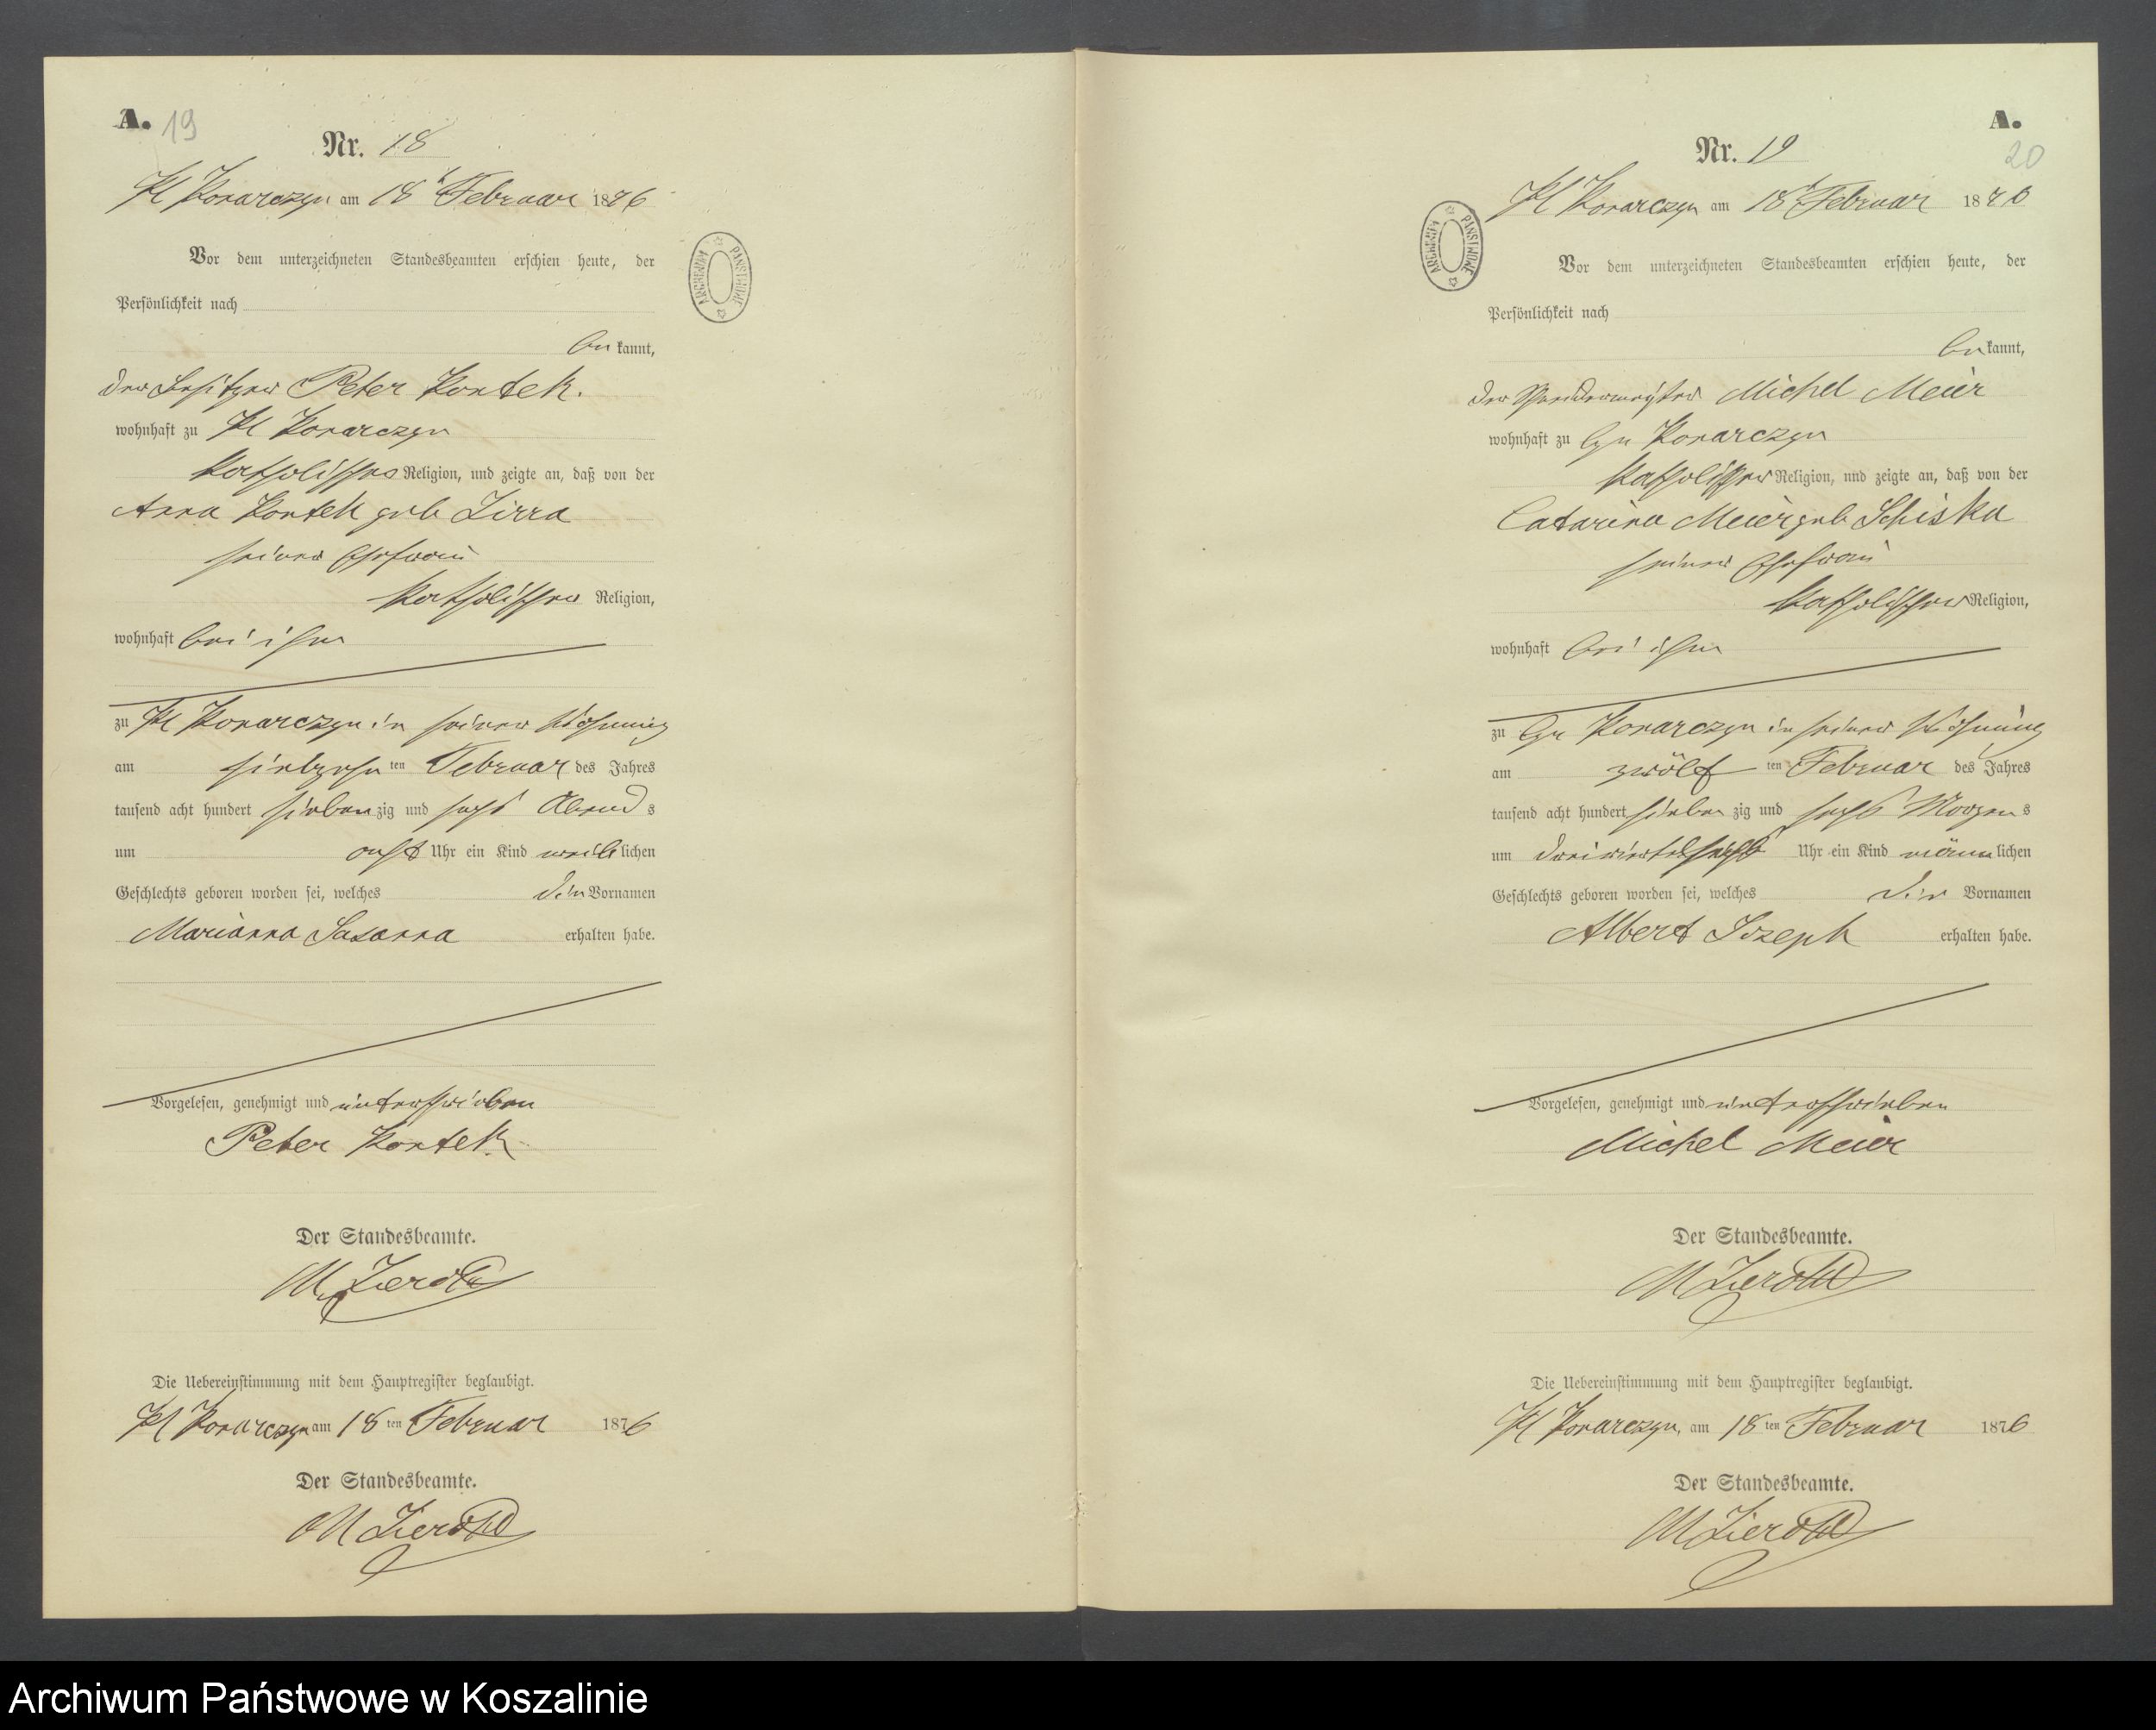 A. 19
Nr. 18
Kl Konarczyn am 18t Februar 1876
Vor dem unterzeichneten Standesbeamten erschien heute, der
Persönlichkeit nach
be kannt,
der Besitzer Peter Kontek.
wohnhaft zu Kl Konarczyn
katholischer Religion, und zeigte an, daß von der
Anna Kontek geb Zirra
seiner Ehefrau
katholischer Religion,
wohnhaft bei ihm
zu Kl Konarczyn in seiner Wohnung
am siebzehn ten Februar des Jahres
tausend acht hundert sieben zig und sechs Abend s
um acht Uhr ein Kind weib lichen
Geschlechts geboren worden sei, welches die Vornamen
Marianna Susanna erhalten habe.
Vorgelesen, genehmigt und unterschrieben
Peter Kontek
Der Standesbeamte.
M
Die Uebereinstimmung mit dem Hauptregister beglaubigt.
Kl Konarczyn am 18 ten Februar 1876
Der Standesbeamte.
M
ARCHIWUM PAŃSTWOWE
A.
20
Nr. 19
Kl Konarczyn am 18t Februar 1876
Vor dem unterzeichneten Standesbeamten erschien heute, der
Persönlichkeit nach
be kannt,
der Michel Meier
wohnhaft zu Gr Konarczyn
katholischer Religion, und zeigte an, daß von der
Catarina Meier geb Schiska
seiner Ehefrau
katholischer Religion,
wohnhaft bei ihm
zu Gr Konarczyn in seiner Wohnung
am zwölf ten Februar des Jahres
tausend acht hundert sieben zig und sechs Morgen s
um dreiviertelsechs Uhr ein Kind männ lichen
Geschlechts geboren worden sei, welches die Vornamen
Albert Jozeph erhalten habe.
Vorgelesen, genehmigt und unterschrieben
Michel Meier
Der Standesbeamte.
M
Die Uebereinstimmung mit dem Hauptregister beglaubigt.
Kl Konarczyn, am 18 ten Februar 1876
Der Standesbeamte.
M
ARCHIWUM PAŃSTWOWE
Archiwum Państwowe w Koszalinie